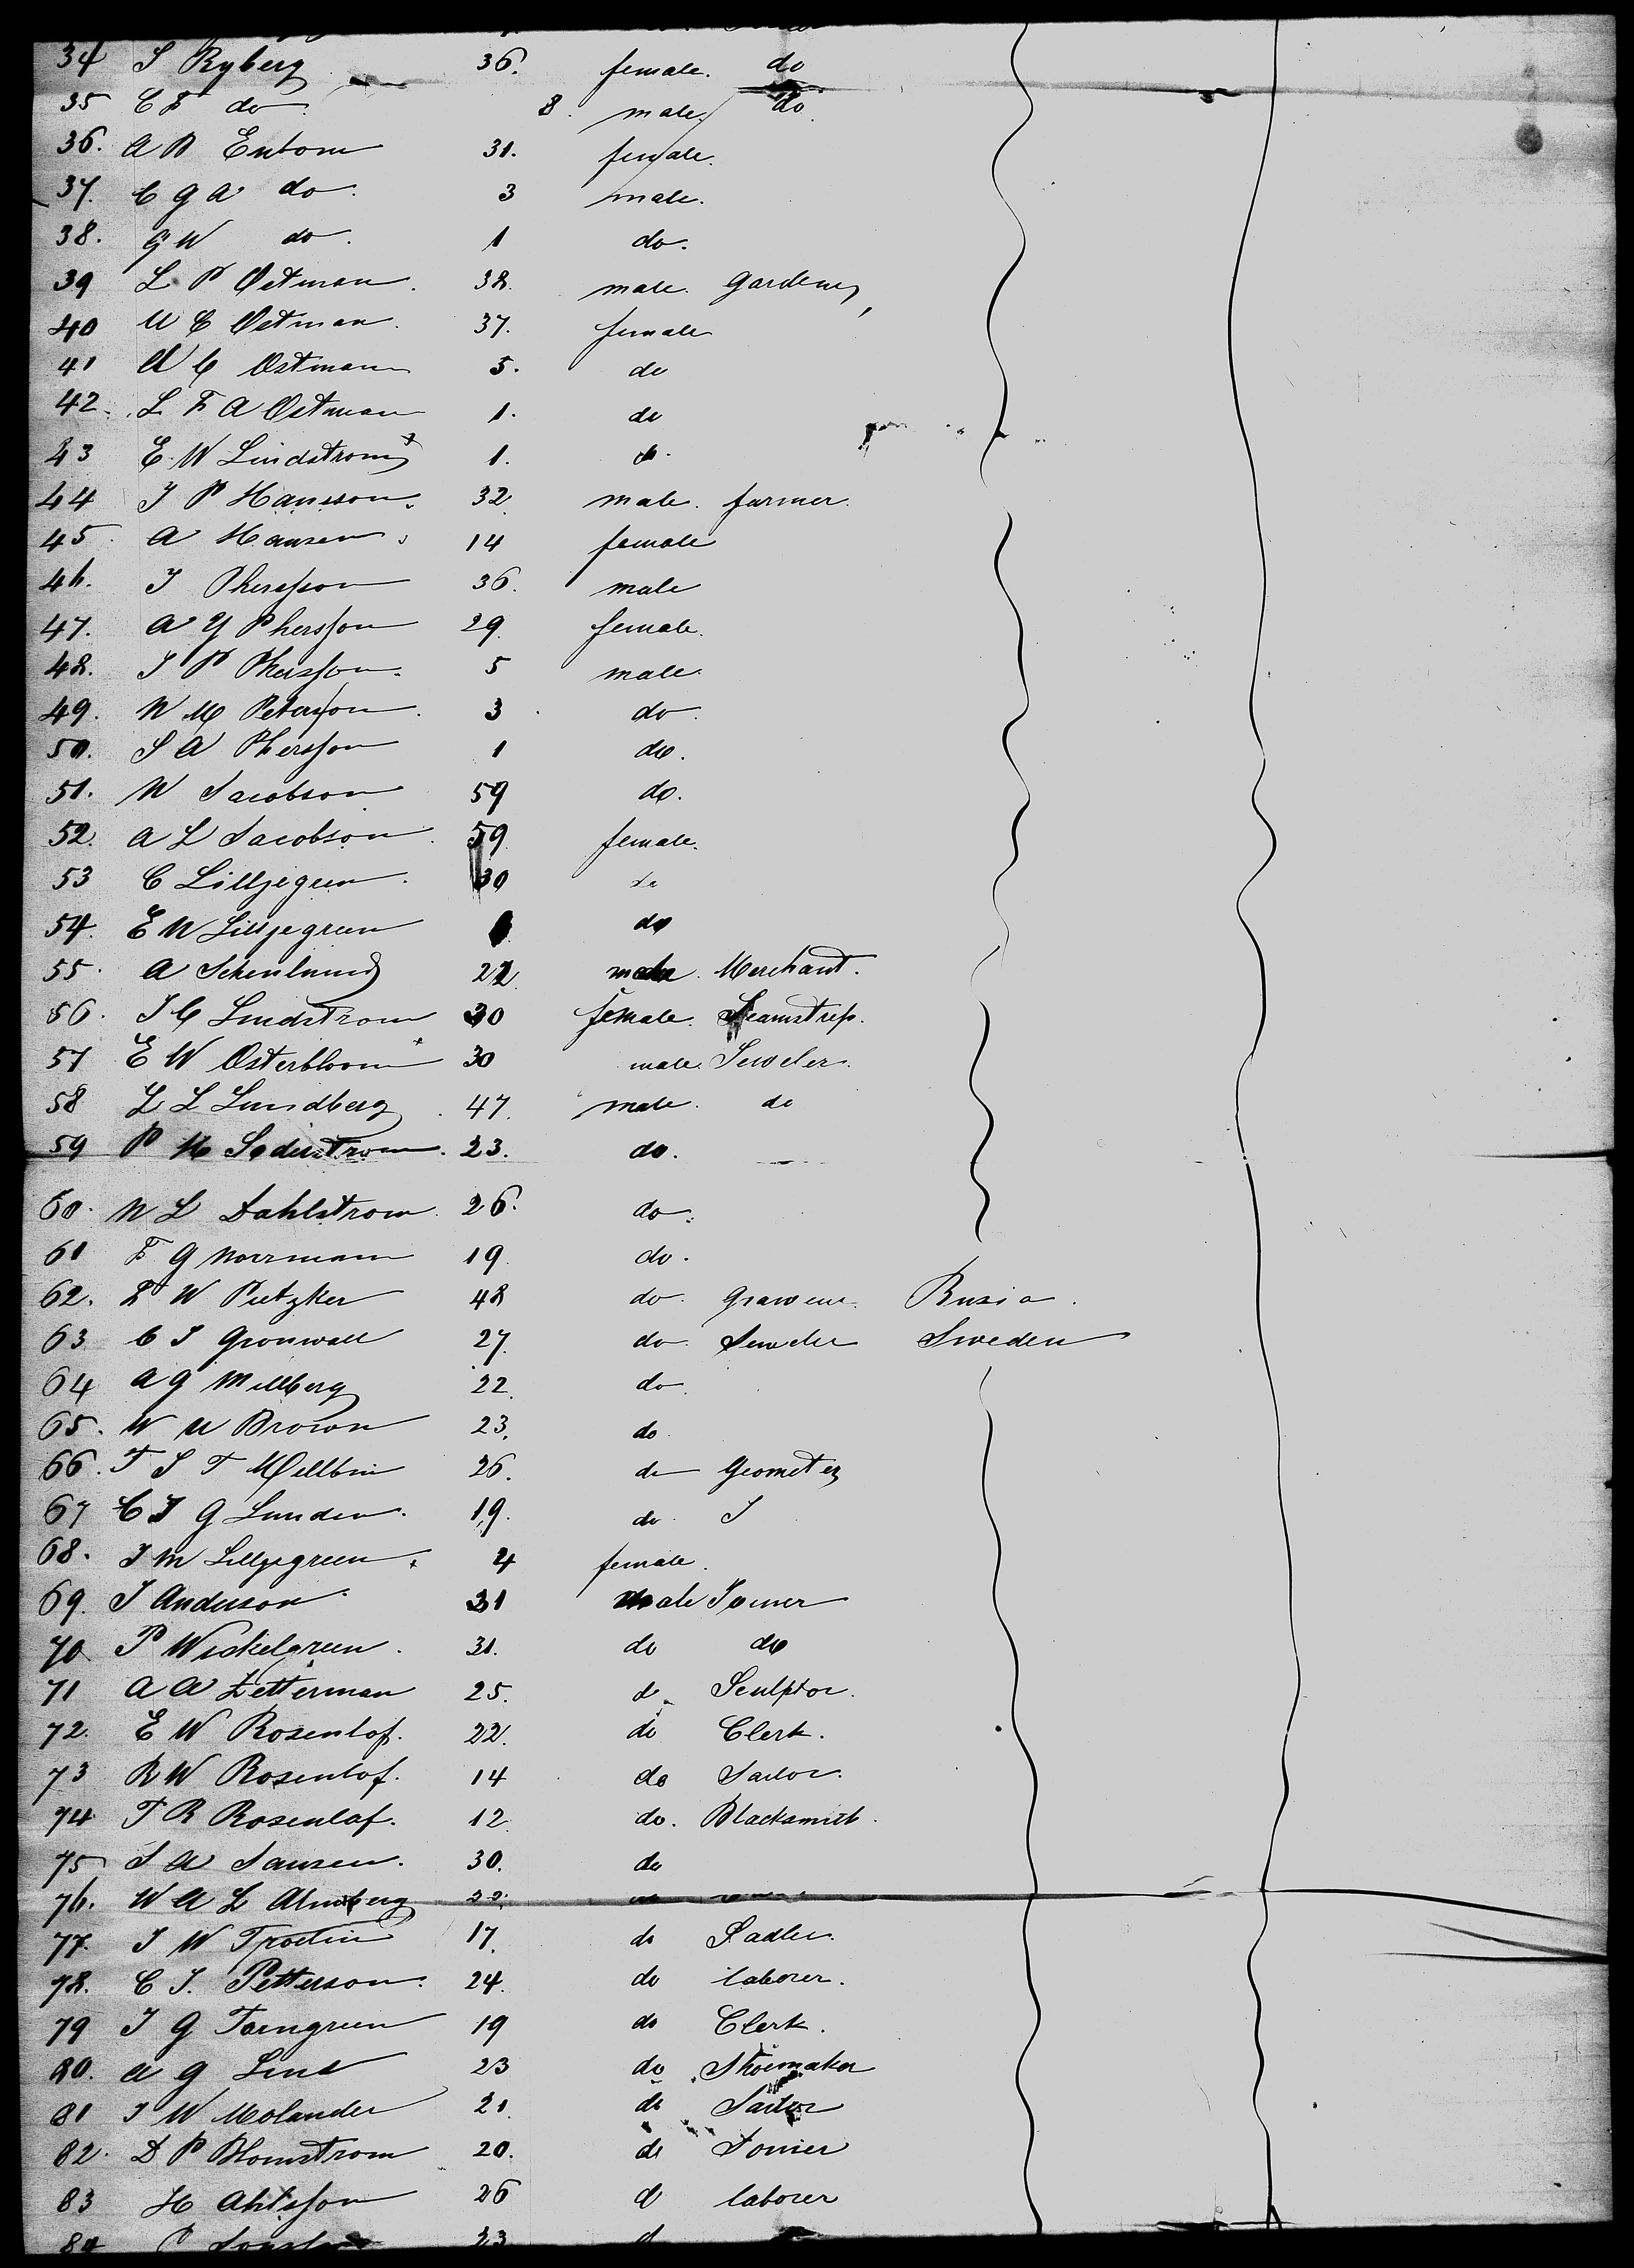 34 S Ryberg 36. female. do
35 C F do. 8. male. do
36. A B Enbom 31. female.
37. C G A do. 3 male.
38. G W do. 1 do.
39 L P Ostman. 38. male. Gardener,
40 U C Ostman. 37. female
41 A C Ostman 5. do
42. L F A Ostman 1. do
43 E. W Lindstrom 1. do.
44 J P Hansson. 32 male. farmer.
45. A Hansen. 14 female
46. J Phersson 36. male
47. A Y Phersson 29. female.
48. J P Phersson. 5 male.
49. N M Petersson. 3 do.
50. S A Phersson 1 do.
51. N Jacobson 59 do.
52. A L Jacobson. 59. female.
53 C Lilljegren. 30 do
54. E N Liljegreen do
55. A Schenlund 22 male. Merchant.
56. J C Lindstrom 30 female. Seamstress.
57 E W Osterbloom 30 male. Jeweler.
58 L L Lundberg 47. male. do
59 P M Soderstrom. 23. do.
60. N L Dahlstrom. 26. do.
61 F G Norrman 19. do.
62. F W Putzker 48 do. Graveur. Rusia.
63 C J Gronwall 27. do. Jeweler Sweden
64 A G Millberg 22. do.
65. W U Brown 23. do.
66. T S T Mellbin 26. do Geometer
67 C J G Lunden. 19. do. J
68. J M Lilljegreen. 4 female.
69. J Anderson. 31 male Joiner
70. P Wickelgreen. 31. do do
71 A A Zetterman 25. d. Sculptor.
72. E W Rosenlof. 22. do Clerk.
73 R W Rosenlof. 14 do Sailor.
74 T R Rosenlof. 12. do. Blacksmith.
75 J A Jansen. 30. do
76. W A L Almberg 22.
77. J W Troelin 17. do Sadler.
78. C J. Petterson. 24. do laborer.
79 J G Torngreen 19 do Clerk.
80. A G Lind 23 do Shoemaker
81 J W Molander 21. do Sailor
82. D P Blomstrom 20. do Joiner
83 H Ahlsson 26 d laborer
84 P 23 d